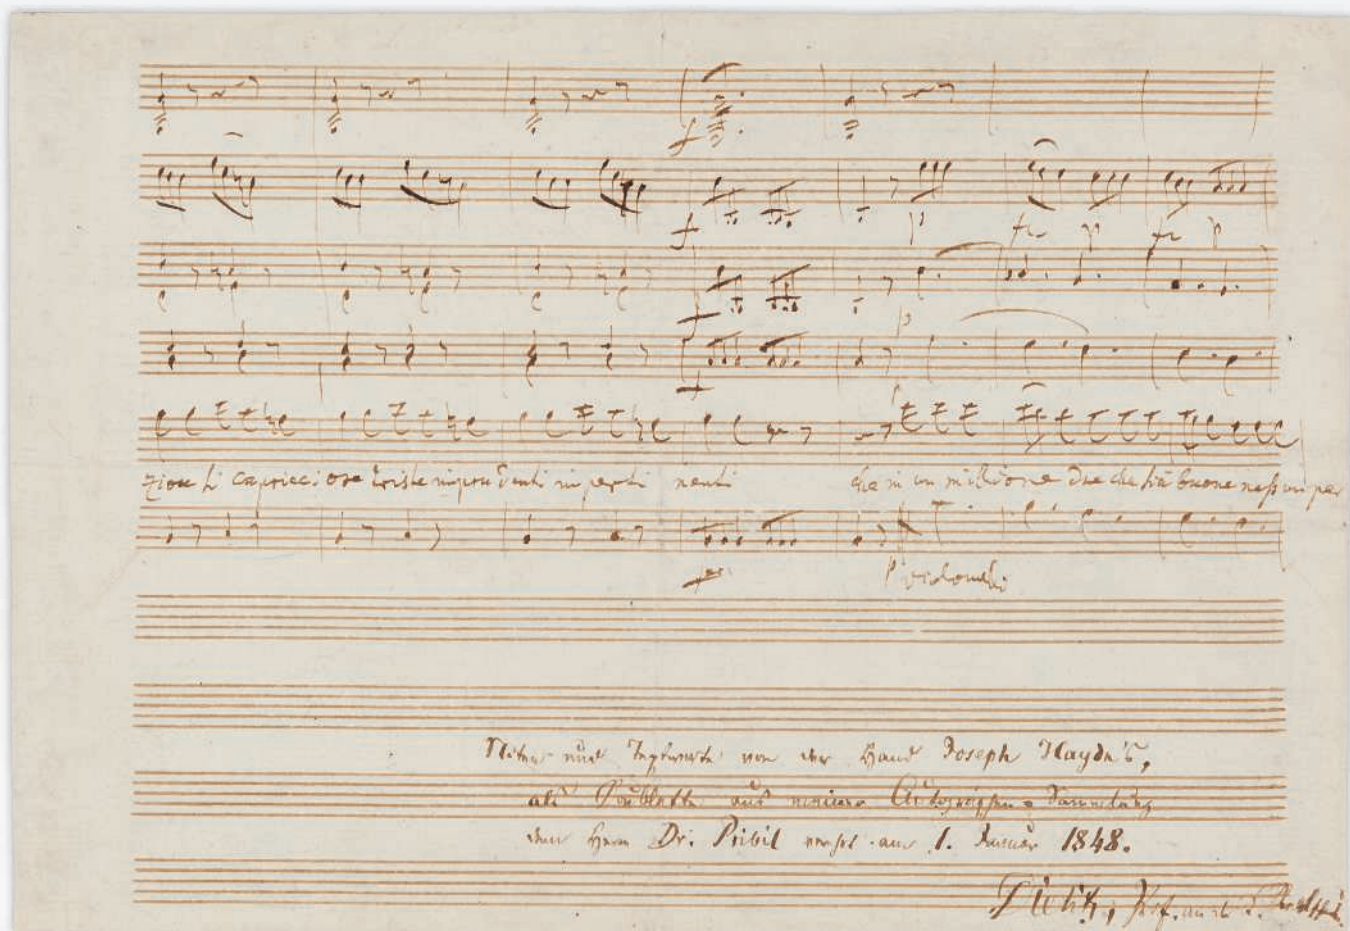 f
f
p fz p fz p
f
p
f
p
zion li capricciose triste imprudenti imperti nenti che in un millione due che sia buone nessun per
f p violoncelli
Noten und Textworte von der Hand Joseph Haydn's,
als Doublette aus meiner Autographen-Sammlung
dem Herrn Dr. Pribil verehrt am 1. Januar 1848.
Prof. an d. k.